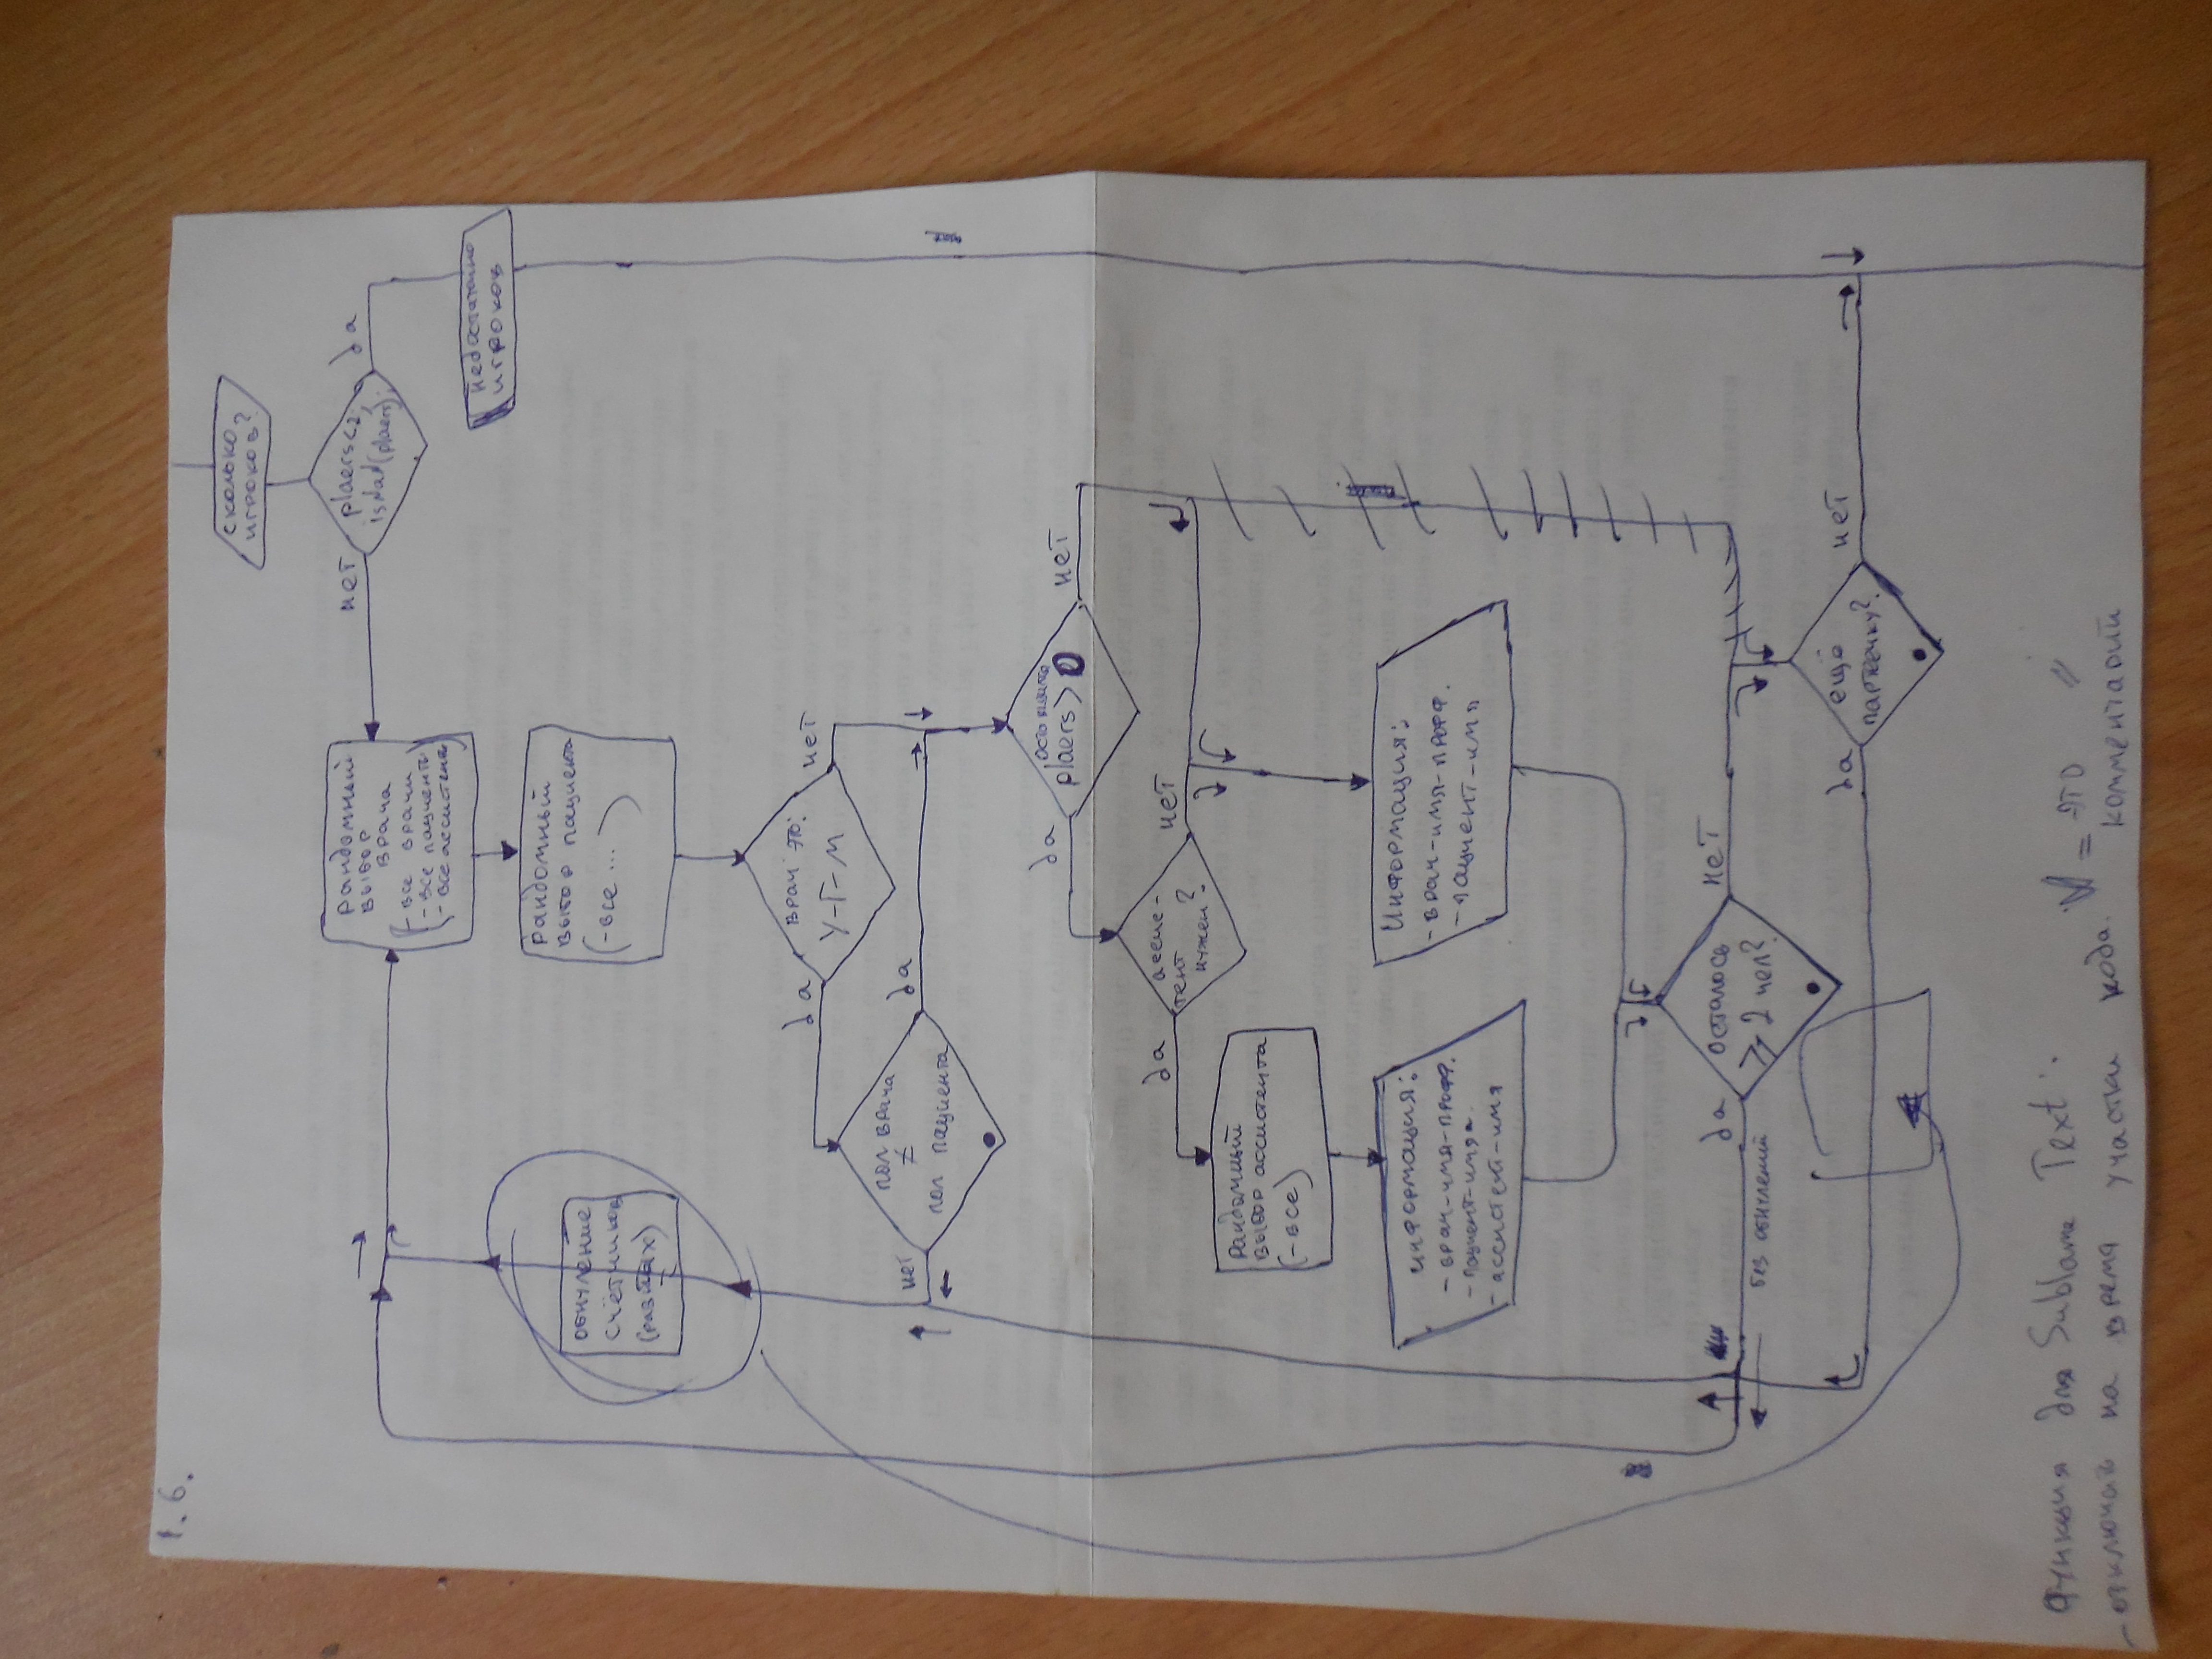 1.6.
сколько
игроков?
plaers<2,
isNaN(plaers).
да
нет
недостаточно
игроков
Рандомный
выбор
врача
(-все врачи
-все пациенты
-все ассистенты)
Рандомный
выбор пациента
(-все ... )
врач это:
У-Г-М
да
нет
пол врача
≠
пол пациента
да
нет
обнуление
счётчиков
(разных)
plaers > 0
да
нет
ассис-
тент
нужен?
да
нет
Рандомный
выбор ассистента
(-все)
Информация:
-врач-имя-проф.
-пациент-имя
информация:
-врач-имя-проф.
-пациент-имя.
-ассистент-имя
осталось
⩾ 2 чел?
да
нет
без обнулений
ещё
партеечку?
да
нет
Функция для Sublame Text:
-отключать на время участки кода. = это //
комментарий